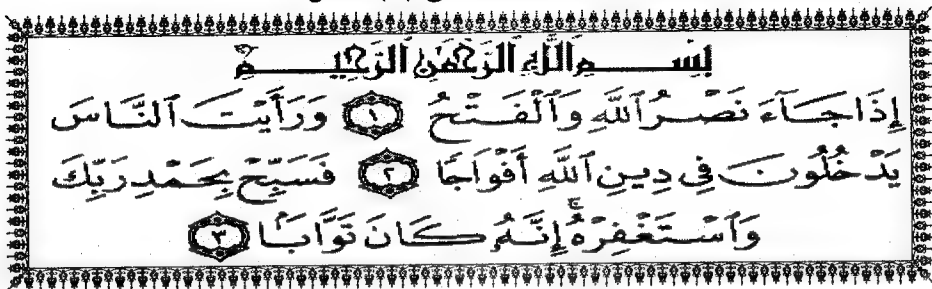 بِسْمِ ٱللَّهِ ٱلرَّحْمَٰنِ ٱلرَّحِيمِ
إِذَا جَآءَ نَصْرُ ٱللَّهِ وَٱلْفَتْحُ ١ وَرَأَيْتَ ٱلنَّاسَ
يَدْخُلُونَ فِى دِينِ ٱللَّهِ أَفْوَاجًا ٢ فَسَبِّحْ بِحَمْدِ رَبِّكَ
وَٱسْتَغْفِرْهُ ۚ إِنَّهُۥ كَانَ تَوَّابًۢا ٣